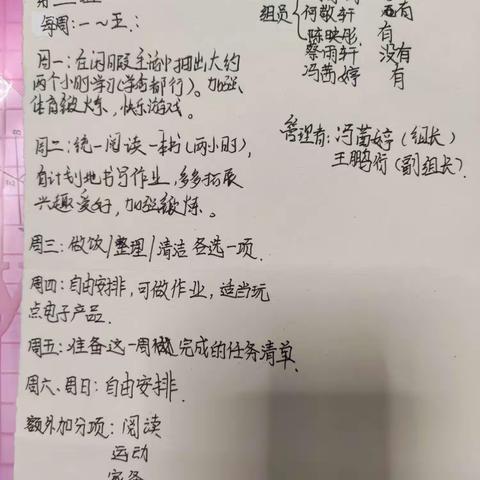 每周：一～五：
组员 何敬轩 没有
陈映彤 有
蔡雨轩 没有
冯茜婷 有
周一：在闲暇生活中抽出大约
两个小时学习(学啥都行)。加强
体育锻炼，快乐游戏。
管理者：冯茜婷（组长）
王鹏衍（副组长）
周二：统一阅读一本书(两小时)，
有计划地书写作业，多多拓展
兴趣爱好，加强锻炼。
周三：做饮/整理/清洁 各选一项.
周四：自由安排，可做作业，适当玩
点电子产品.
周五：准备这一周完成的任务清单.
周六、周日：自由安排.
额外加分项：阅读
运动
家务